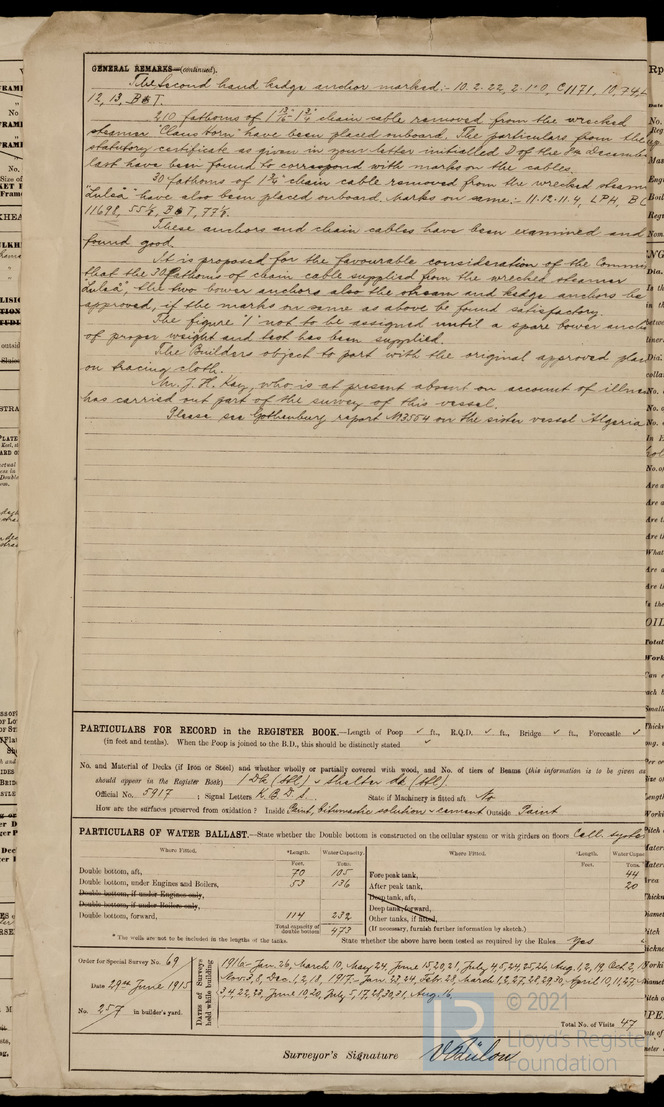 GENERAL REMARKS—(continued).
The Second hand kedge anchor marked:- 10.2.22, 2.1.0, C1171, 10,7¼,
12, 13, B&T.
210 fathoms of chain cable removed from the wrecked
steamer "Claus Horn" have been placed onboard. The particulars from the
statutory certificate as given in your letter initialled D of the 8th December
last have been found to correspond with marks on the cables.
30 fathoms of 1¾" chain cable removed from the wrecked steamer
"Luleå" have also been placed onboard. Marks on same:- 11.12.11.4, LPH, B C
11698, 55⅛, B&T, 77⅛.
These anchors and chain cables have been examined and
found good.
It is proposed for the favourable consideration of the Commi
that the 30 fathoms of chain cable supplied from the wrecked steamer
"Luleå", the two bower anchors also the stream and kedge anchors be
approved, if the marks on same as above be found satisfactory.
The figure "1" not to be assigned until a spare bower anch
of proper weight and test has been supplied.
The Builders object to part with the original approved plan
on tracing cloth.
Mr. J. H. Kay, who is at present absent on account of illness
has carried out part of the survey of this vessel.
Please see Gothenburg report No 3554 on the sister vessel Algeria
PARTICULARS FOR RECORD in the REGISTER BOOK.—Length of Poop ✓ ft., R.Q.D. ✓ ft., Bridge ✓ ft., Forecastle ✓
(in feet and tenths). When the Poop is joined to the B.D., this should be distinctly stated ✓
No. and Material of Decks (if Iron or Steel) and whether wholly or partially covered with wood, and No. of tiers of Beams (this information is to be given as
should appear in the Register Book) 1 Dk (Stl) & shelter dk (Stl).
Official No. 5917 ; Signal Letters K.B.D.S. State if Machinery is fitted aft No
How are the surfaces preserved from oxidation? Inside Paint, bitumastic solution & cement Outside Paint
PARTICULARS OF WATER BALLAST.—State whether the Double bottom is constructed on the cellular system or with girders on floors Cell. syste
Where Fitted. *Length. Water Capacity. Where Fitted. *Length. Water Capac
Feet. Tons. Feet. Tons.
Double bottom, aft, 70 105 Fore peak tank, 44
Double bottom, under Engines and Boilers, 53 136 After peak tank, 20
Double bottom, if under Engines only, Deep tank, aft,
Double bottom, if under Boilers only, Deep tank, forward,
Double bottom, forward, 114 232 Other tanks, if fitted,
Total capacity of double bottom 473 (If necessary, furnish further information by sketch.)
* The wells are not to be included in the lengths of the tanks. State whether the above have been tested as required by the Rules Yes
Order for Special Survey No. 69
Date 29th June 1915
No. 257 in builder's yard.
Dates of Surveys held while building
1916 - Jan. 26, March 10, May 24, June 15,20,21, July 4,5,24,25,26, Aug. 1,2,19, Oct. 2,
Nov. 3,8, Dec. 1,2,18, 1917 - Jan. 23,24, Feb. 28, March 1,2,27,28,29,30, April 10,11,27,
3,4,22,23, June 10,20, July 5,17,28,30,31, Aug. 16.
Total No. of Visits 47
Surveyor's Signature
© 2021
Lloyd's Register
Foundation